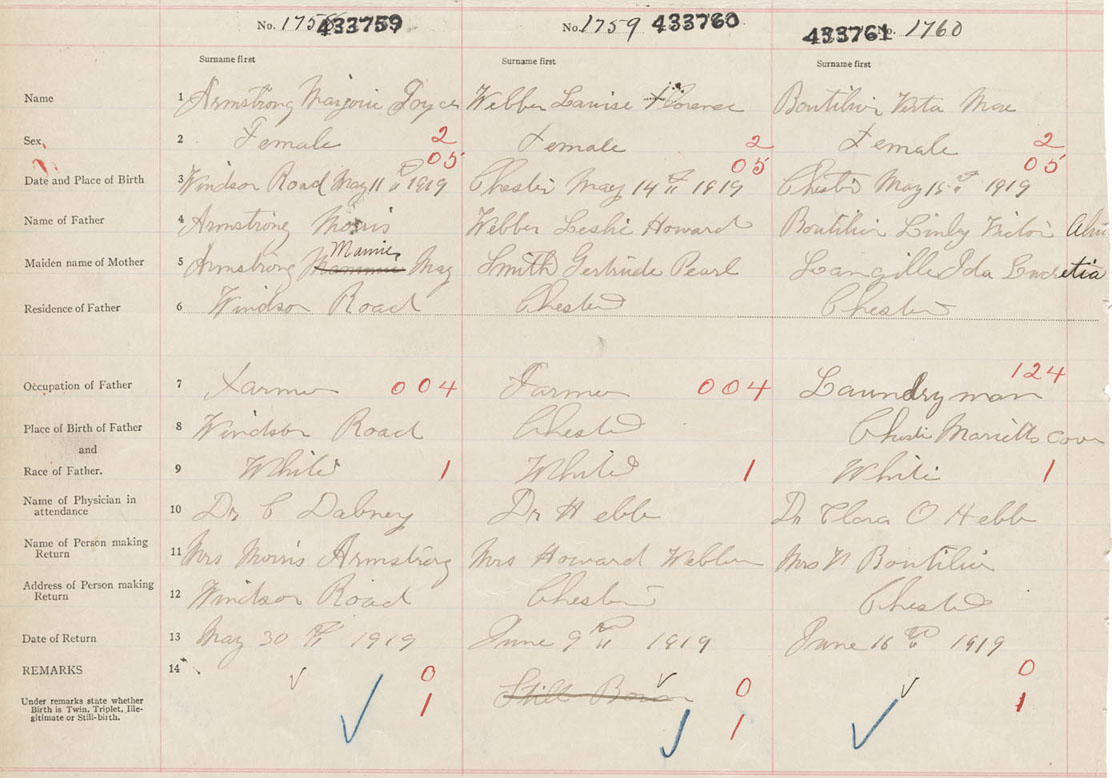 No. 1758 433759 No. 1759 433760 433761 No. 1760
Surname first Surname first Surname first
Name 1 Armstrong Marjorie Joyce Webber Louise Florence Boutilier Verta Mae
Sex 2 Female 2 Female 2 Female 2
05 05 05
Date and Place of Birth 3 Windsor Road May 11th 1919 Chester May 14th 1919 Chester May 15th 1919
Name of Father 4 Armstrong Morris Webber Leslie Howard Boutilier Linly Victor
Mannie
Maiden name of Mother 5 Armstrong May Smith Gertrude Pearl Loangille Ida Lucretia
Residence of Father 6 Windsor Road Chester Chester
124
Occupation of Father 7 Farmer 004 Farmer 004 Laundryman
Place of Birth of Father 8 Windsor Road Chester Chester Marietts Cove
and
Race of Father. 9 White 1 White 1 White 1
Name of Physician in
attendance 10 Dr C Dabney Dr Hebb Dr Clara O Hebb
Name of Person making
Return 11 Mrs Morris Armstrong Mrs Howard Webber Mrs V Boutilier
Address of Person making
Return 12 Windsor Road Chester Chester
Date of Return 13 May 30th 1919 June 9th 1919 June 16th 1919
REMARKS 14 0 Still Born 0 0
Under remarks state whether
Birth is Twin, Triplet, Ille-
gitimate or Still-birth. 1 1 1